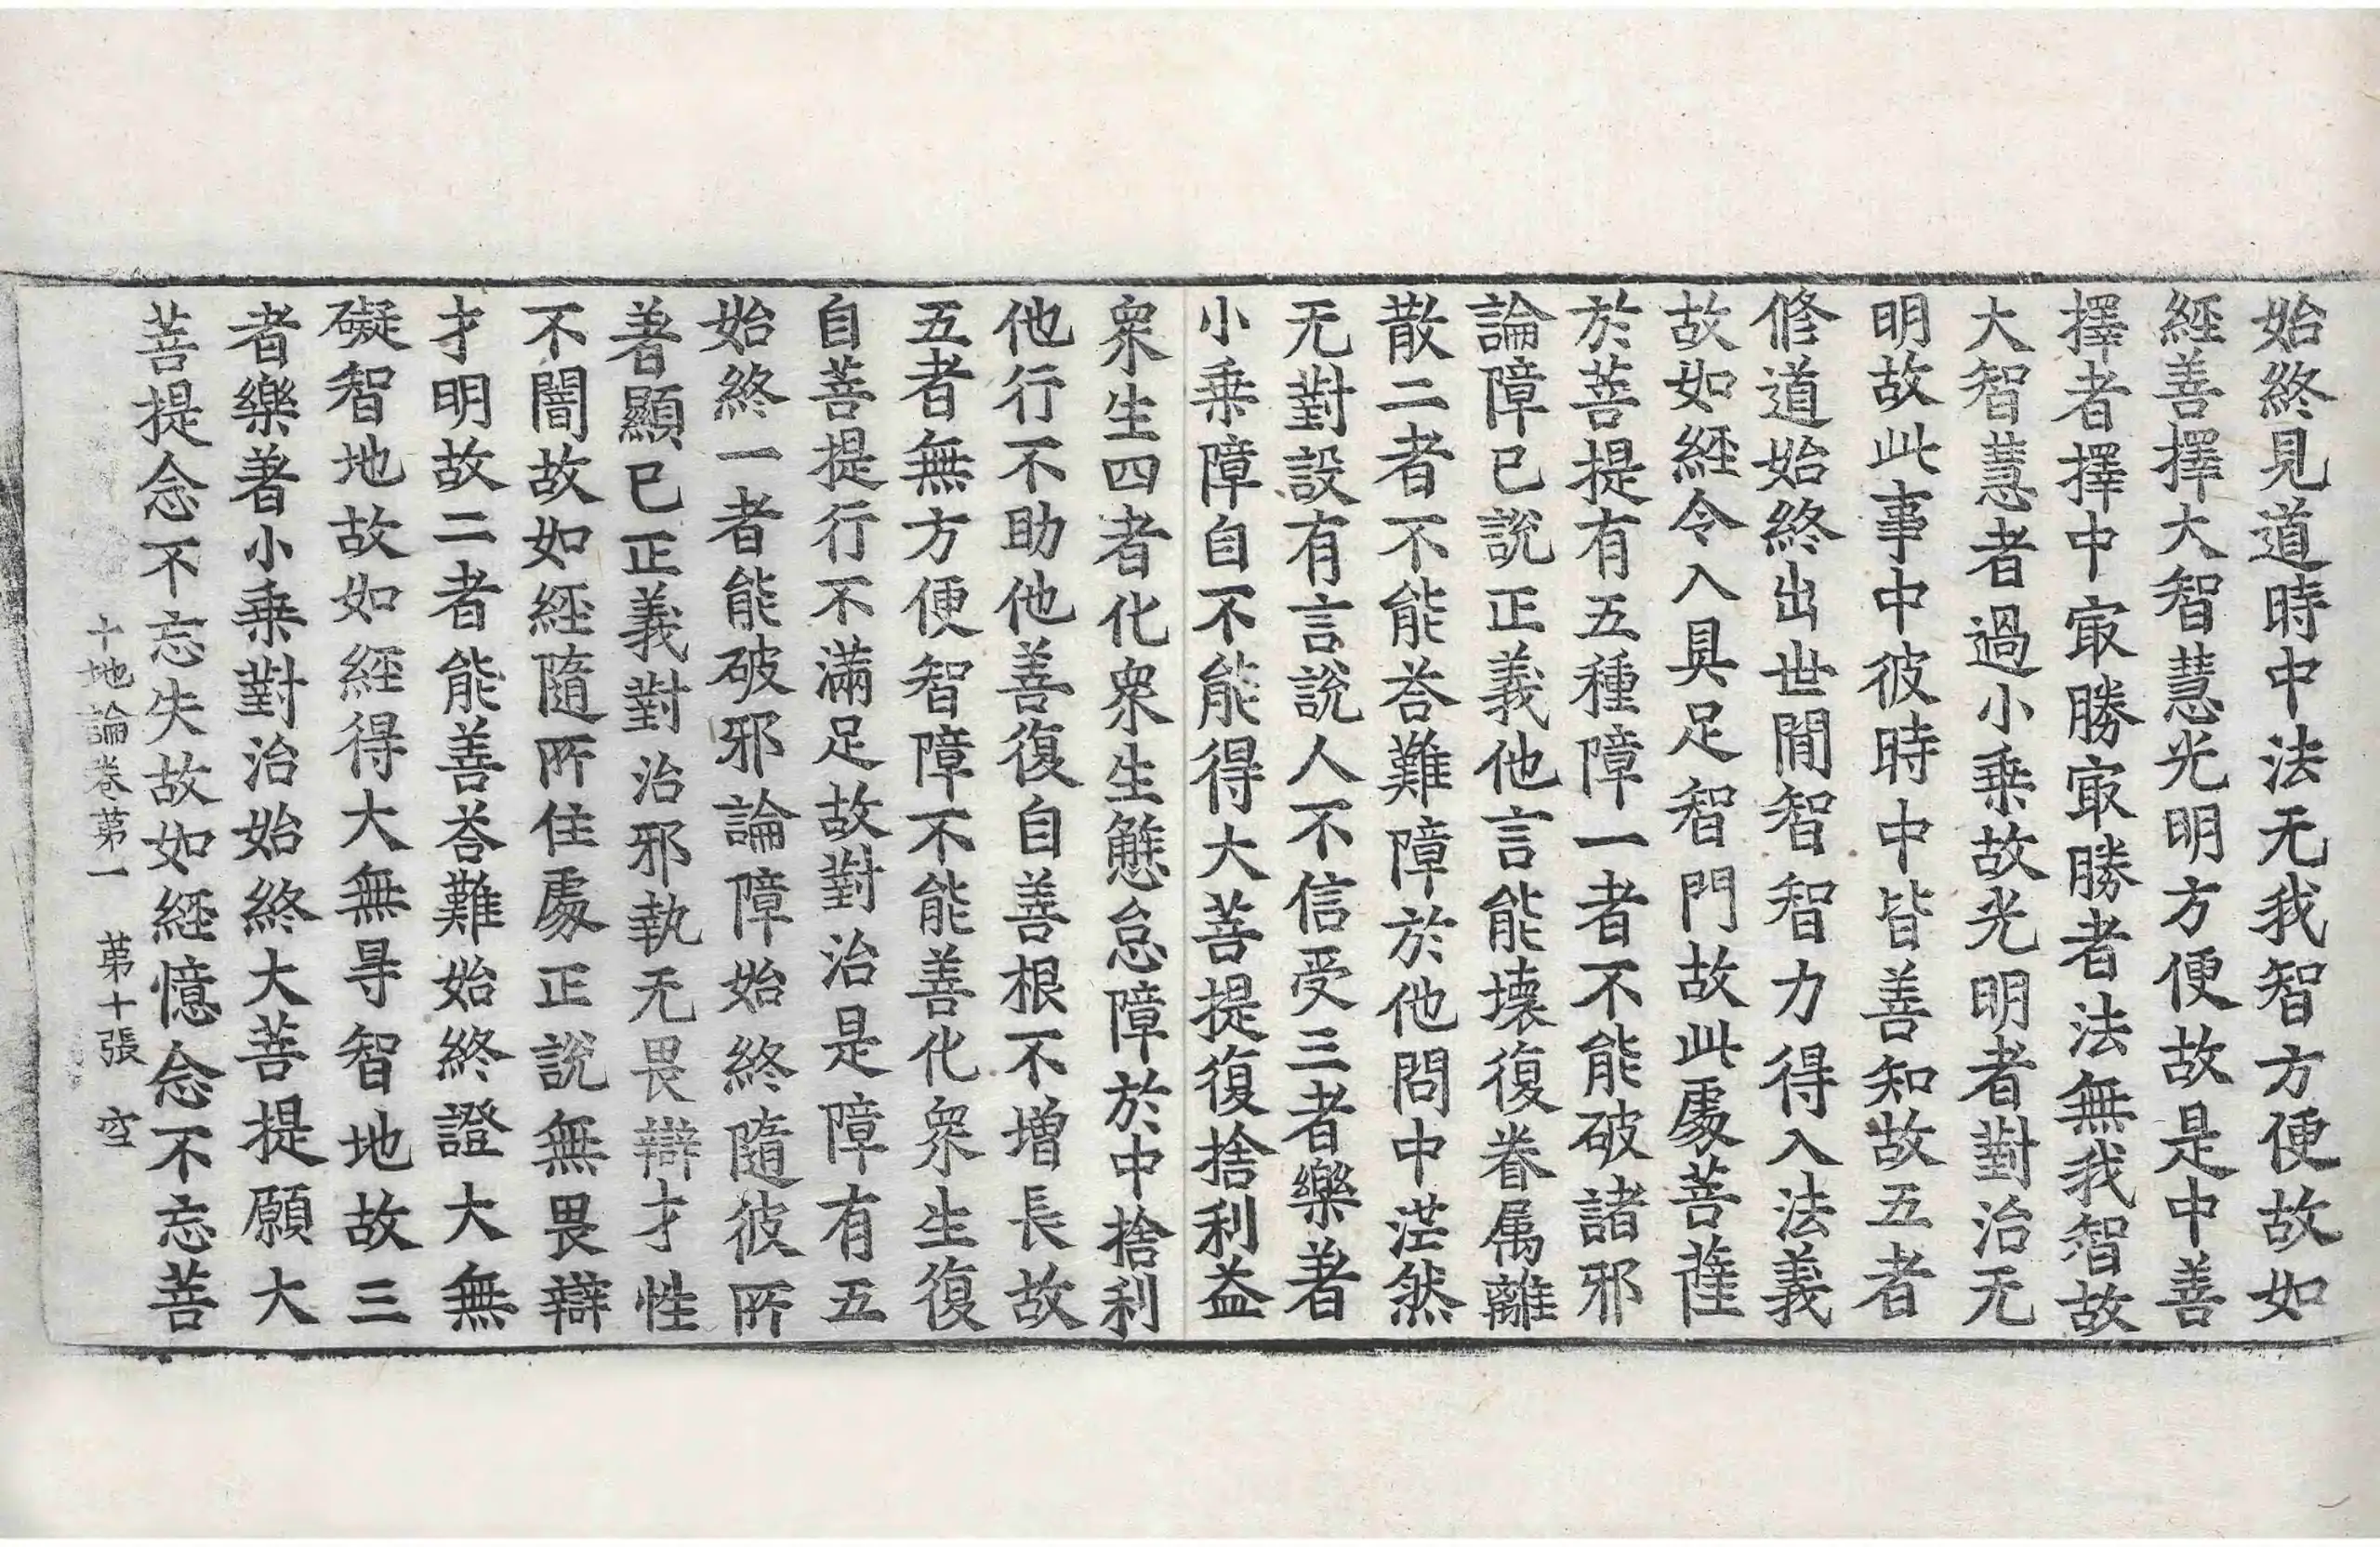 始終見道時中法无我智方便故如
經善擇大智慧光明方便故是中善
擇者擇中㝡勝㝡勝者法無我智故
大智慧者過小乗故光明者對治无
明故此事中彼時中皆善知故五者
修道始終出世閒智智力得入法義
故如經令入具足智門故此䖏菩薩
於菩提有五種障一者不能破諸邪
論障已說正義他言能壊復眷属離
散二者不能荅難障於他問中茫然
无對設有言說人不信受三者樂著
小乗障自不能得大菩提復捨利益
衆生四者化衆生懈怠障於中捨利
他行不助他善復自善根不增長故
五者無方便智障不能善化衆生復
自菩提行不滿足故對治是障有五
始終一者能破邪論障始終隨彼所
著顯已正義對治邪執无畏辯才性
不闇故如經隨所住䖏正說無畏辯
才明故二者能善荅難始終證大無
礙智地故如經得大無㝵智地故三
者樂著小乗對治始終大菩提願大
菩提念不忘失故如經憶念不忘菩
十地論卷第一　第十張　空